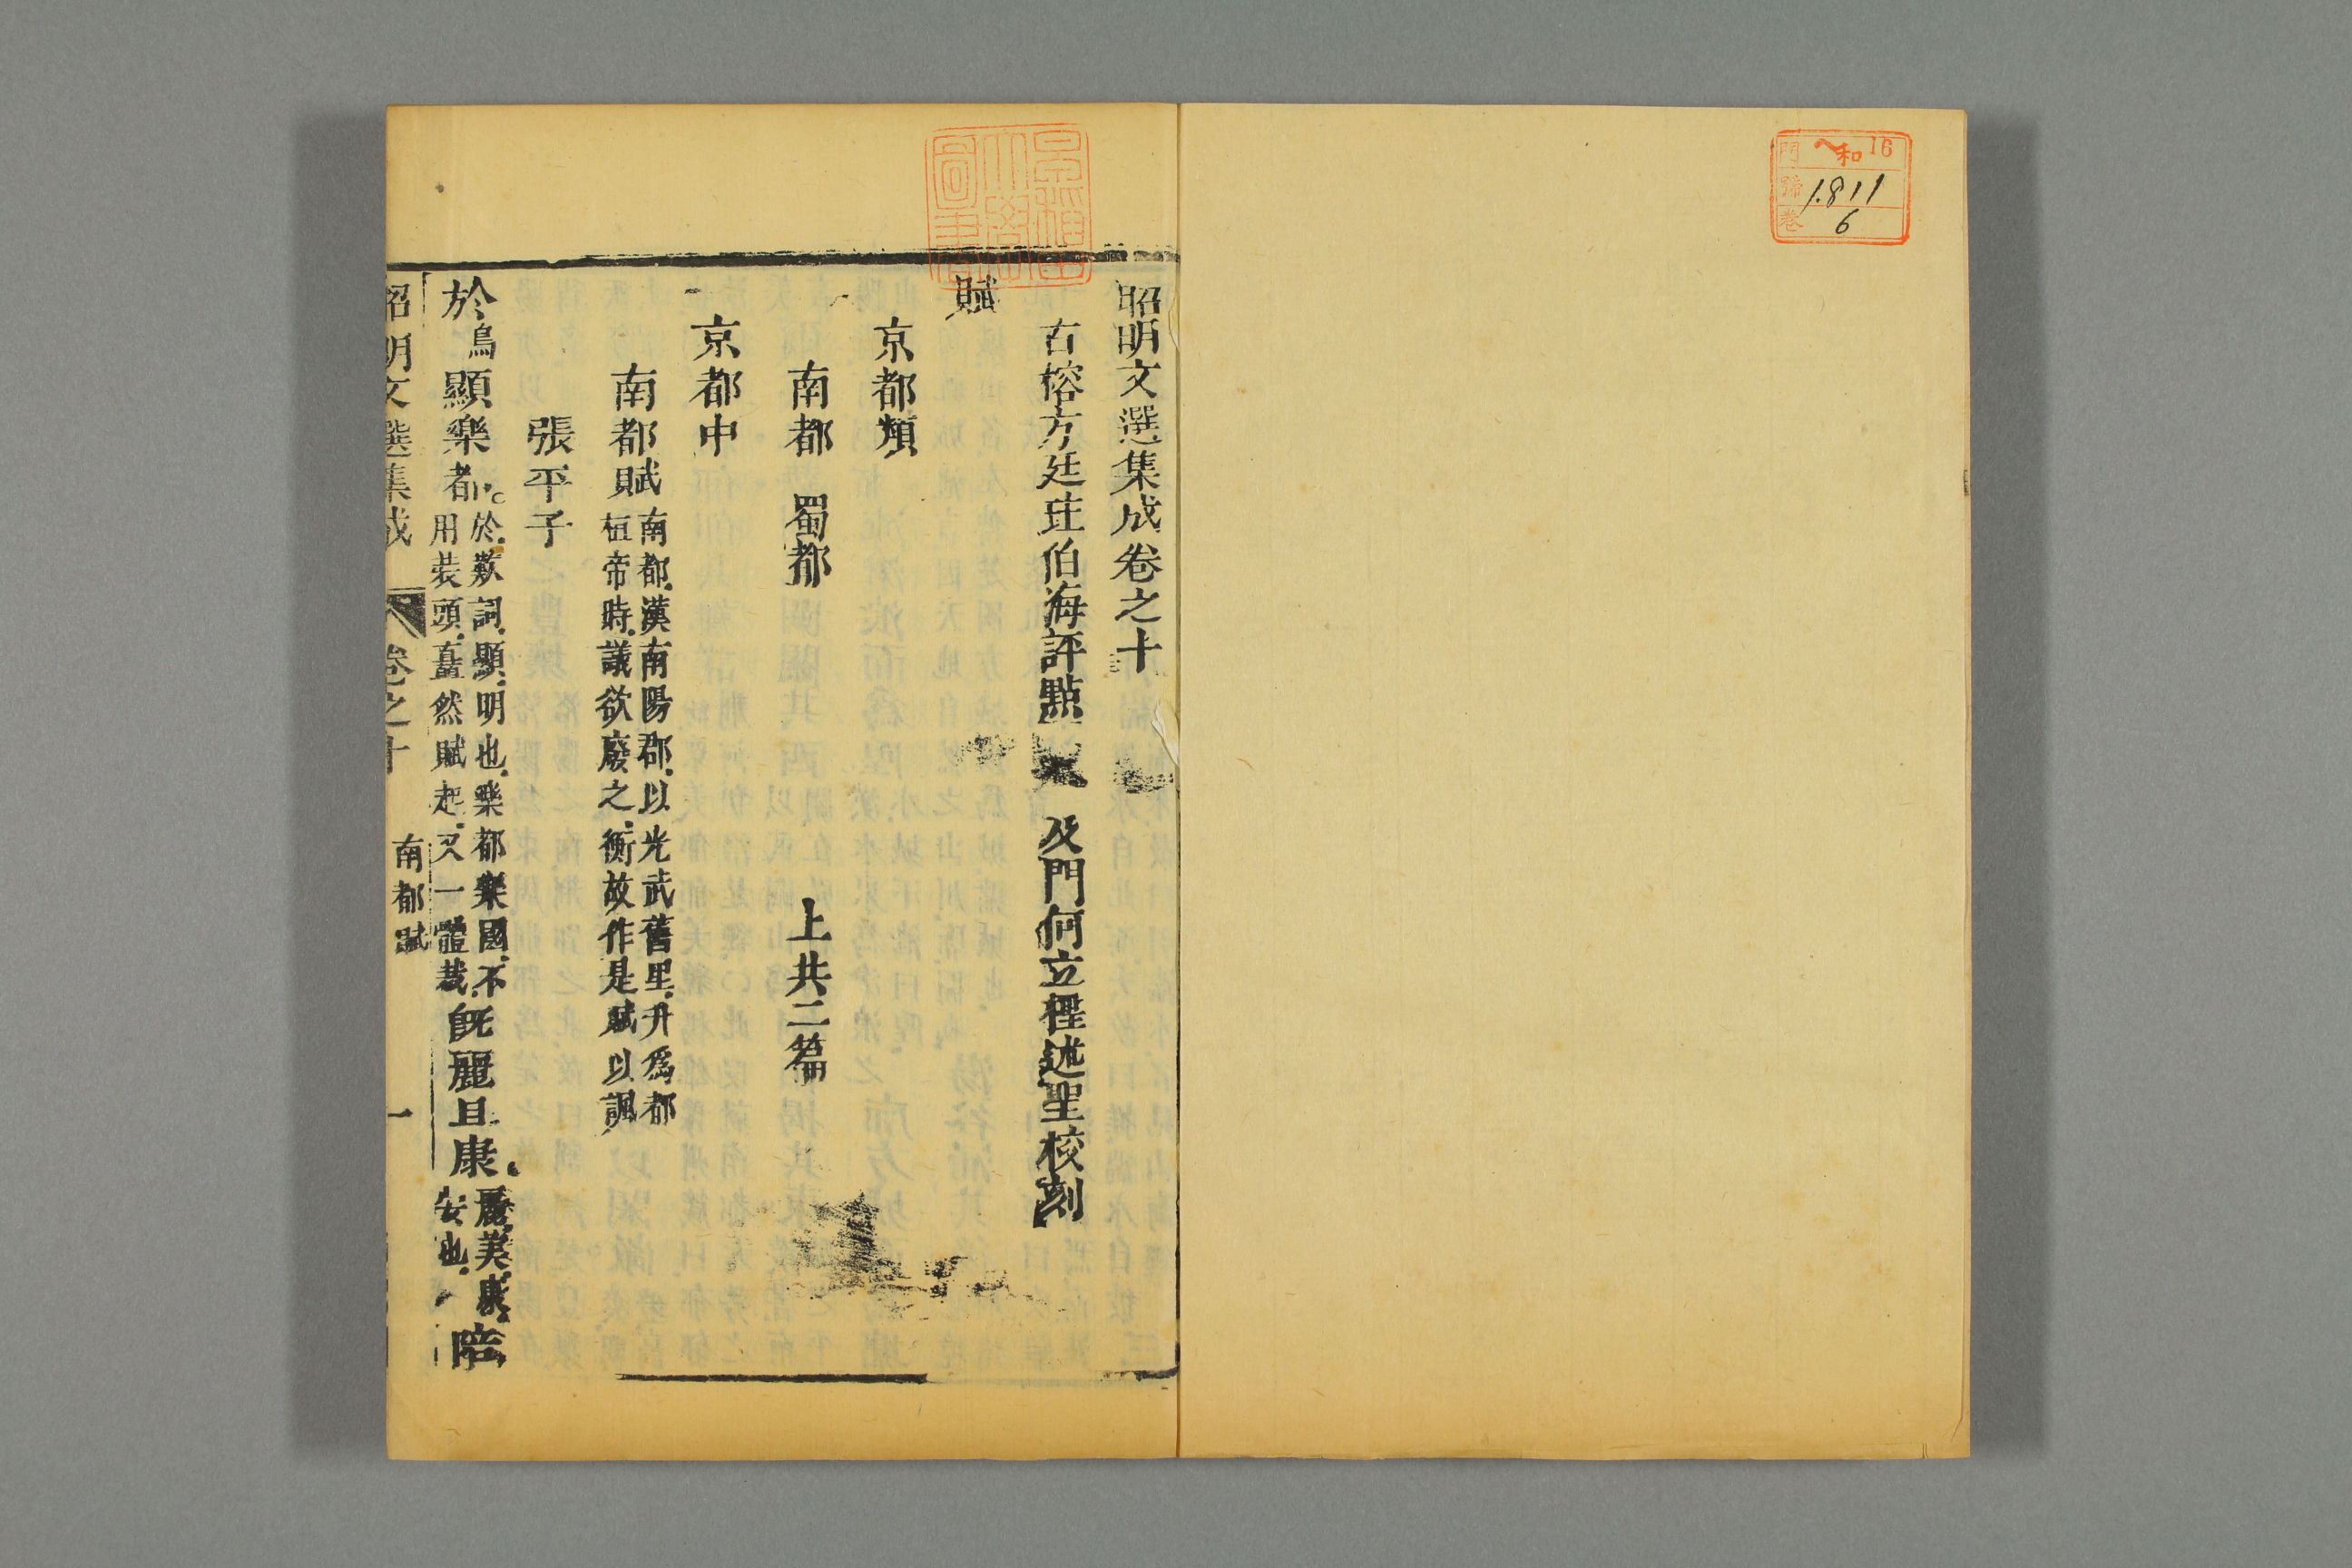 和 16
門
號 1.811
卷 6
昭明文選集成卷之十
古榕方廷珪伯海評點 及門何立程述聖校刻
賦
京都類
南都 蜀都 上共二篇
京都中
南都賦 南都漢南陽郡以光武舊里升爲都
桓帝時議欲廢之衡故作是賦以諷
張平子
於烏顯樂都。於歎詞顯明也樂都樂國不
用裝頭矗然賦起又一體裁 旣麗且康 麗美康
安也 陪
昭明文選集成 卷之十 南都賦 一
早稻田大學圖書